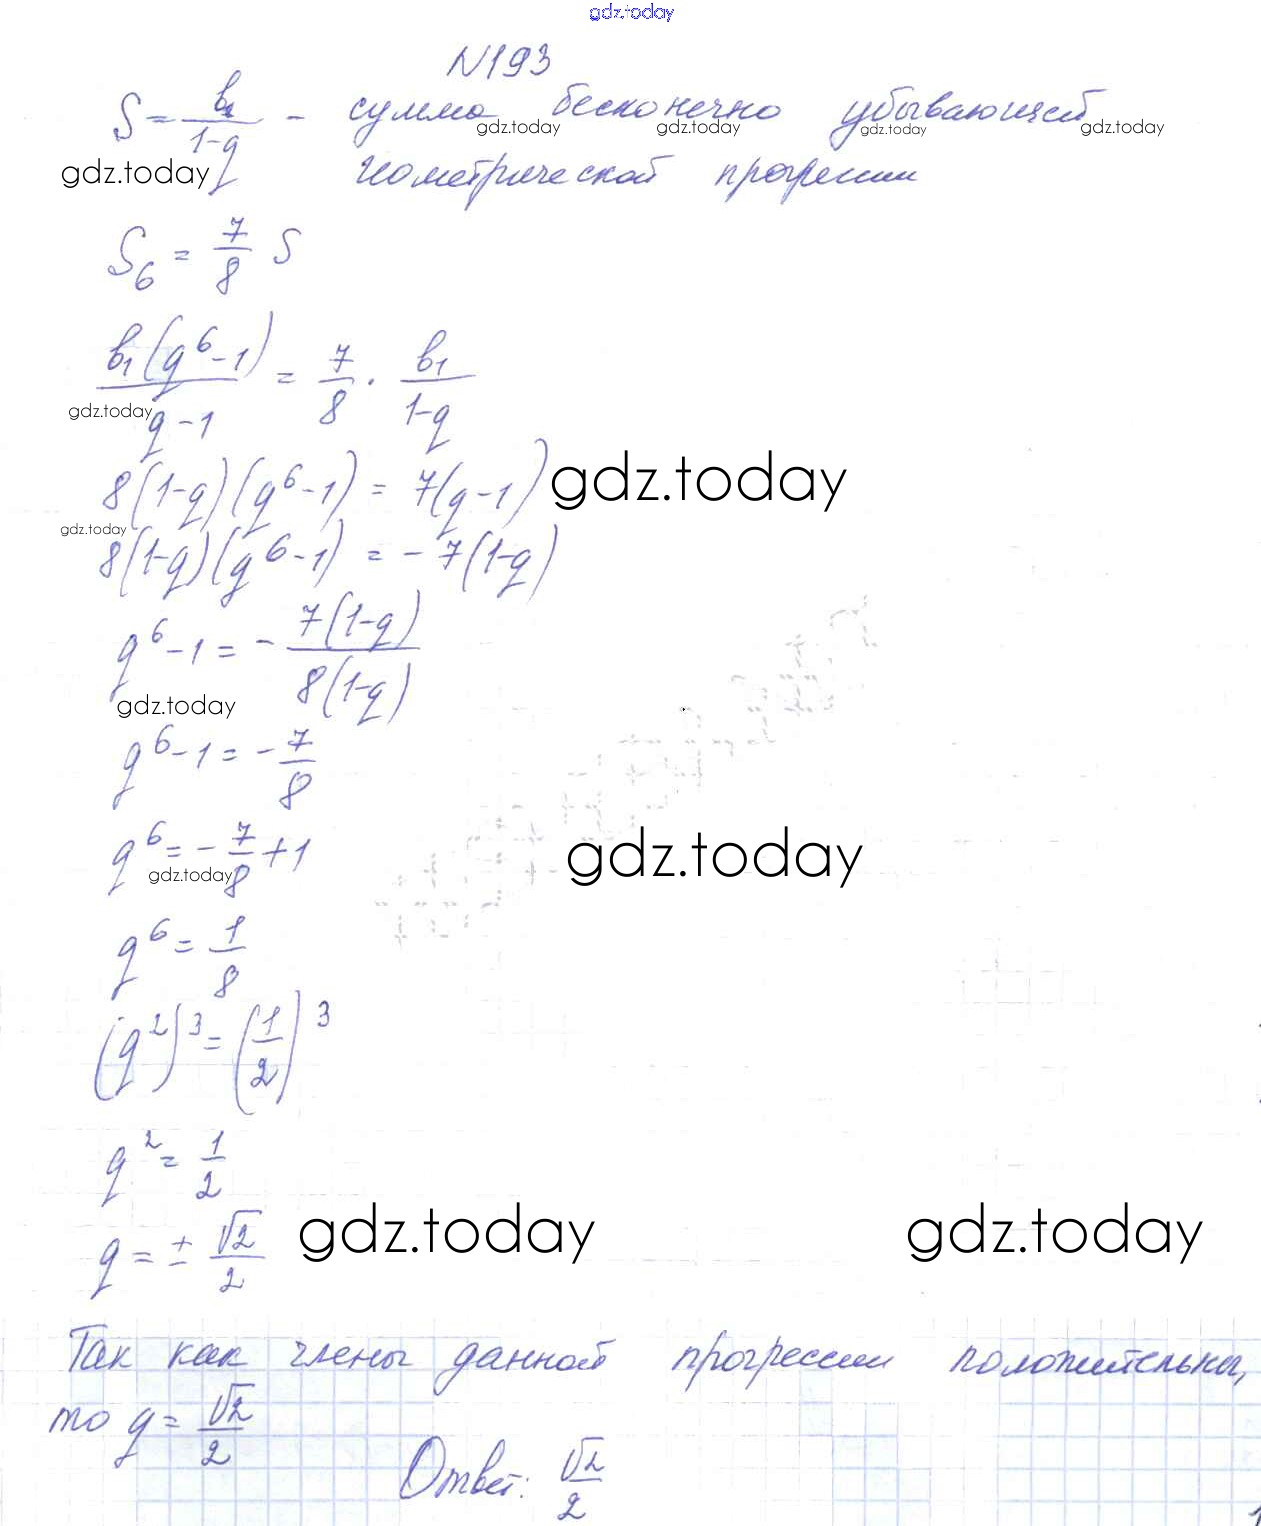 gdz.today
N193
S = b₁/(1-q) - сумма бесконечно убывающей
gdz.today gdz.today gdz.today gdz.today
gdz.today
геометрической прогрессии
S₆ = 7/8 S
b₁(q⁶-1)/(q-1) = 7/8 · b₁/(1-q)
gdz.today
8(1-q)(q⁶-1) = 7(q-1)
gdz.today
gdz.today
8(1-q)(q⁶-1) = -7(1-q)
q⁶-1 = - 7(1-q)/8(1-q)
gdz.today
q⁶-1 = -7/8
q⁶ = -7/8 + 1
gdz.today
gdz.today
q⁶ = 1/8
(q²)³ = (1/2)³
q² = 1/2
q = ± √2/2
gdz.today gdz.today
Так как члены данной прогрессии положительны,
то q = √2/2
Ответ: √2/2